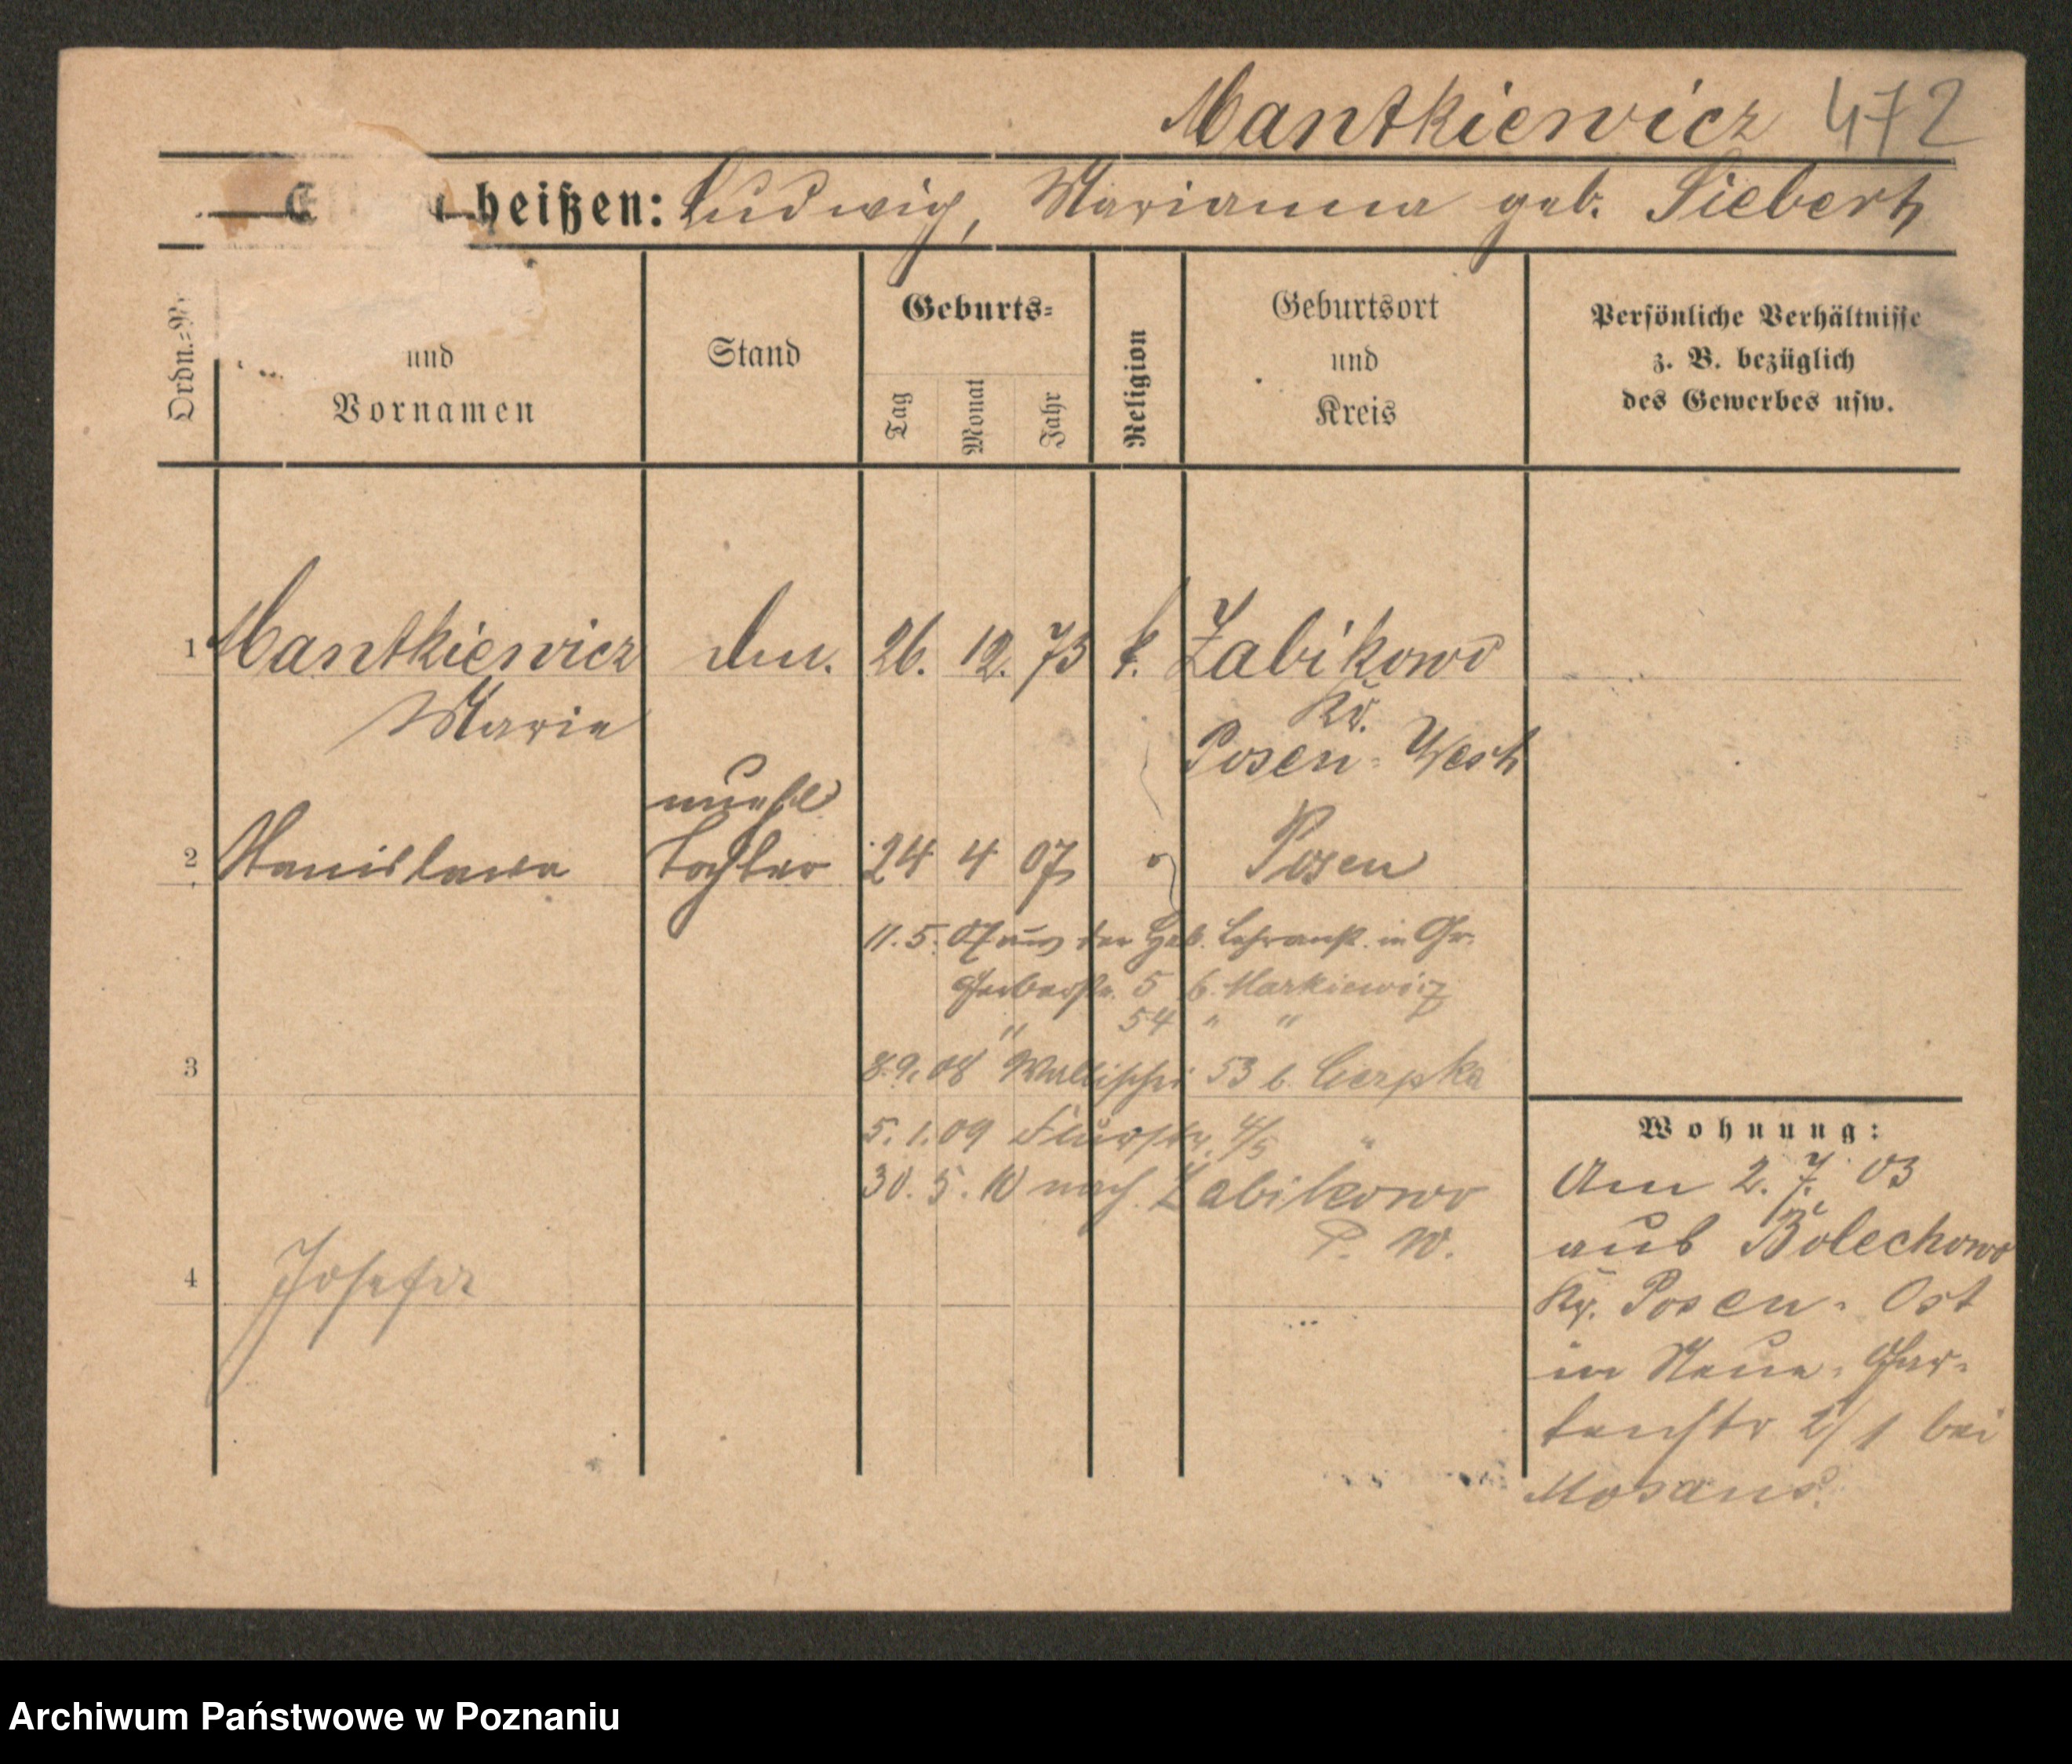 Mantkiewicz 472
heißen: Ludwig, Marianna geb. Siebert
Ordn.=Nr.
und
Vornamen
Stand
Geburts=
Tag
Monat
Jahr
Religion
Geburtsort
und
Kreis
Persönliche Verhältnisse
z. B. bezüglich
des Gewerbes usw.
1 Mantkiewicz 26. 12. 73 k. Zabikowo
Marie Kr.
Posen=West
unehl
2 Stanislawa Tochter 24 4 07 Posen
11. 5. 07 aus der Heb. Lehranst. in Gr.
Gerberstr. 5 b. Markiewicz
" 54 " "
3 8.9.08 Wallischei 53 b. Cierpka
5.1.09 Flurstr. 4/5 "
30. 5. 10 nach Zabikowo
P. W.
4 Josefa
Wohnung:
Am 2. 7. 03
aus Bolechowo
Kr. Posen=Ost
in Neue=Gar=
tenstr 2/1 bei